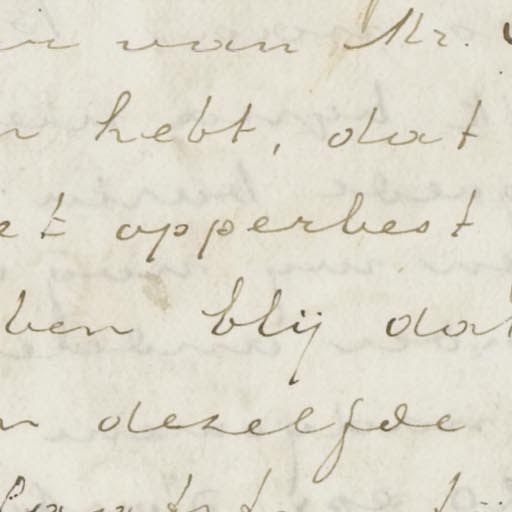 van Mr.
hebt, dat
opperbest
ben blij dat
dezelfde